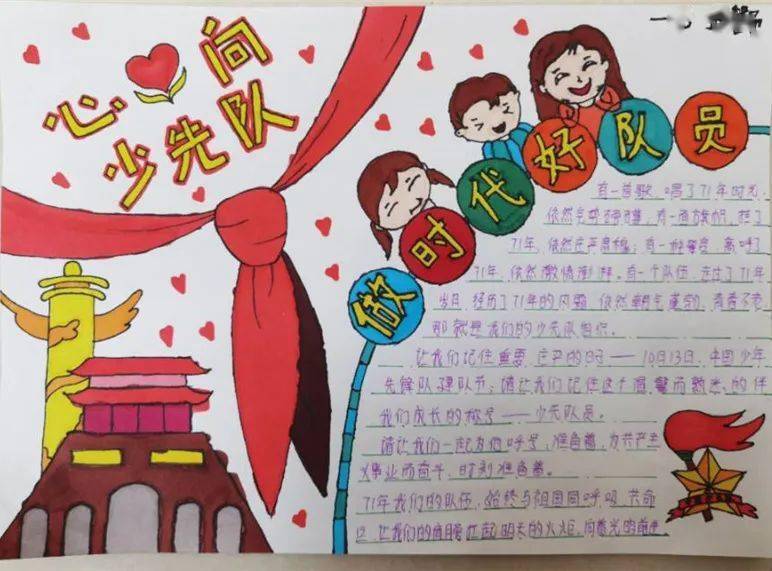 心向
少先队
做时代好队员
有一首歌,唱了71年时光,
依然,有一面旗帜,
71年,依然庄严肃穆;有一种誓言,
71年,依然激情澎湃。有一个队伍,走过了71年
岁月,经历了71年的风霜,依然朝气蓬勃,青春不老
那就是我们的少先队组织。
让我们记住重要、庄严的日子——10月13日,中国少年
先锋队建队节;请让我们记住这个的伴
我们成长的称号——少先队员。
请让我们一起为您呼号,准备着,为共产主
义事业而奋斗,时刻准备着。
71年我们的队伍,始终与祖国同呼吸、共命
让我们的肩膀扛起明天的火炬,向着光明前进